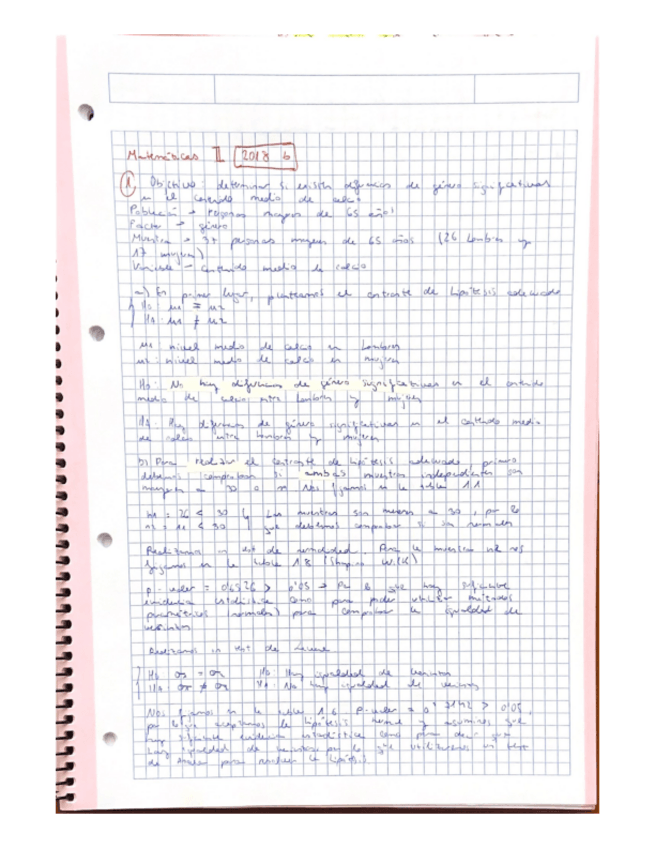 Matemáticas II 2018 6
1 Objetivo: determinar si existen diferencias de género significativas
en el contenido medio de calcio
Población → Personas mayores de 65 años
Factor → género
Muestra → personas mayores de 65 años (26 hombres y
mujeres)
Variable → contenido medio de calcio
a) En primer lugar, planteamos el contraste de hipótesis adecuado
H0: μ1 = μ2
H1: μ1 ≠ μ2
μ1: nivel medio de calcio en hombres
μ2: nivel medio de calcio en mujeres
H0: No hay diferencias de género significativas en el contenido
medio de calcio entre hombres y mujeres
H1: Hay diferencias de género significativas en el contenido medio
de calcio entre hombres y mujeres
b) Para realizar el contraste de hipótesis adecuado, primero
debemos comprobar si ambas muestras independientes son
mayores a 30 o no. Nos fijamos en la tabla 1.1
= 26 < 30 Las muestras son menores a 30, por lo
< 30 que debemos comprobar si son normales
Realizamos un test de normalidad. Para las muestras nos
fijamos en la tabla 1.8 (Shapiro Wilk)
p-valor = > 0'05 → Por lo que hay suficiente
evidencia estadística como para poder utilizar métodos
paramétricos (normales) para comprobar la igualdad de
varianzas
Realizamos un test de Levene
H0: = H0: Hay igualdad de varianzas
H1: ≠ H1: No hay igualdad de varianzas
Nos fijamos en la tabla 1.6 p-valor = > 0'05,
por lo que aceptamos la hipótesis y asumimos que
hay suficiente evidencia estadística como para decir que
hay igualdad de varianzas por lo que utilizaremos un test
de para resolver la hipótesis